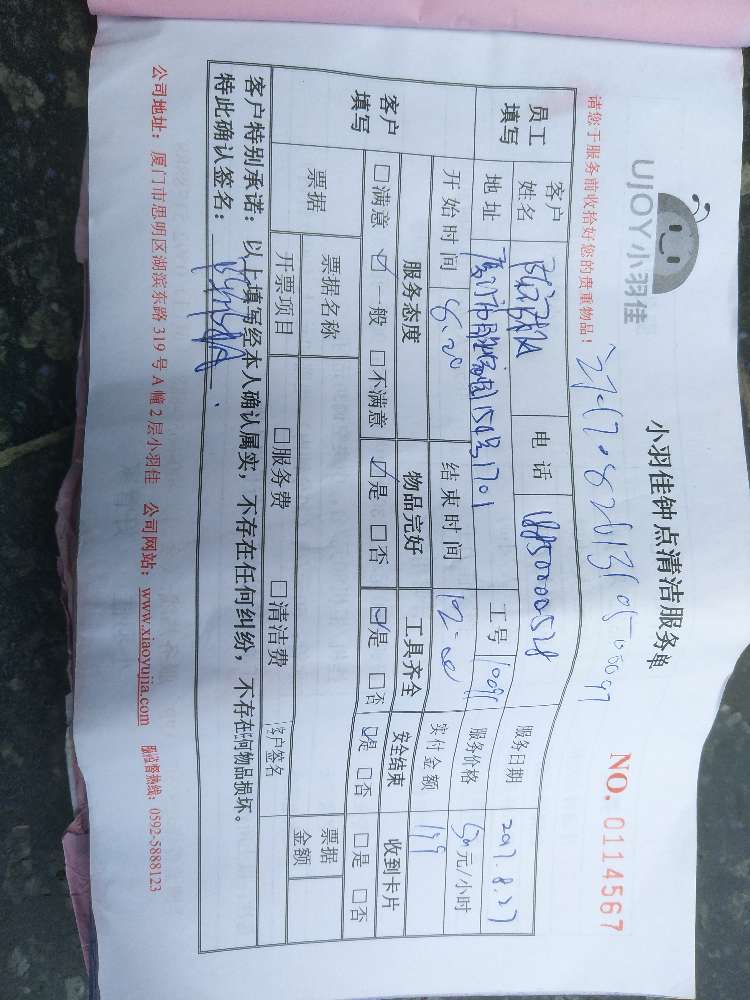 UJOY小羽佳
小羽佳钟点清洁服务单
NO. 0114567
请您于服务前收拾好您的贵重物品！
员工填写
客户姓名
电话
服务日期 2017.8.27
地址
工号
服务价格 50元/小时
开始时间 8:20
结束时间 12:00
实付金额 199
客户填写
服务态度 物品完好 工具齐全 安全结束 收到卡片
□满意 ☑一般 □不满意 ☑是 □否 ☑是 □否 ☑是 □否 □是 □否
票据
票据名称
票据金额
开票项目 □服务费 □清洁费 客户签名
客户特别承诺：以上填写经本人确认属实，不存在任何纠纷，不存在任何物品损坏。
特此确认签名：
公司地址：厦门市思明区湖滨东路319号A幢2层小羽佳 公司网站：www.xiaoyujia.com 服务监督热线：0592-5888123